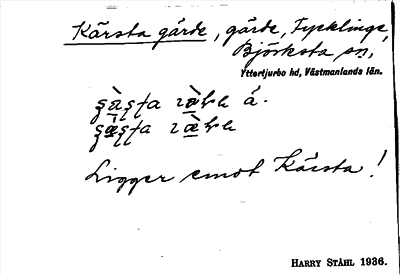 Kärsta gärde, gärde, Tycklinge,
Björksta sn,
Yttertjurbo hd, Västmanlands län.
á.
Ligger emot Kärsta!
HARRY STÅHL 1936.